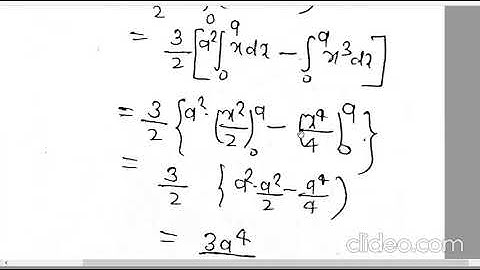 2 0
= 3/2 [a² ∫₀ᵃ x dx − ∫₀ᵃ x³ dx]
= 3/2 {a² · (x²/2)₀ᵃ − x⁴/4 |₀ᵃ}
= 3/2 {a² · a²/2 − a⁴/4)
= 3a⁴
clideo.com